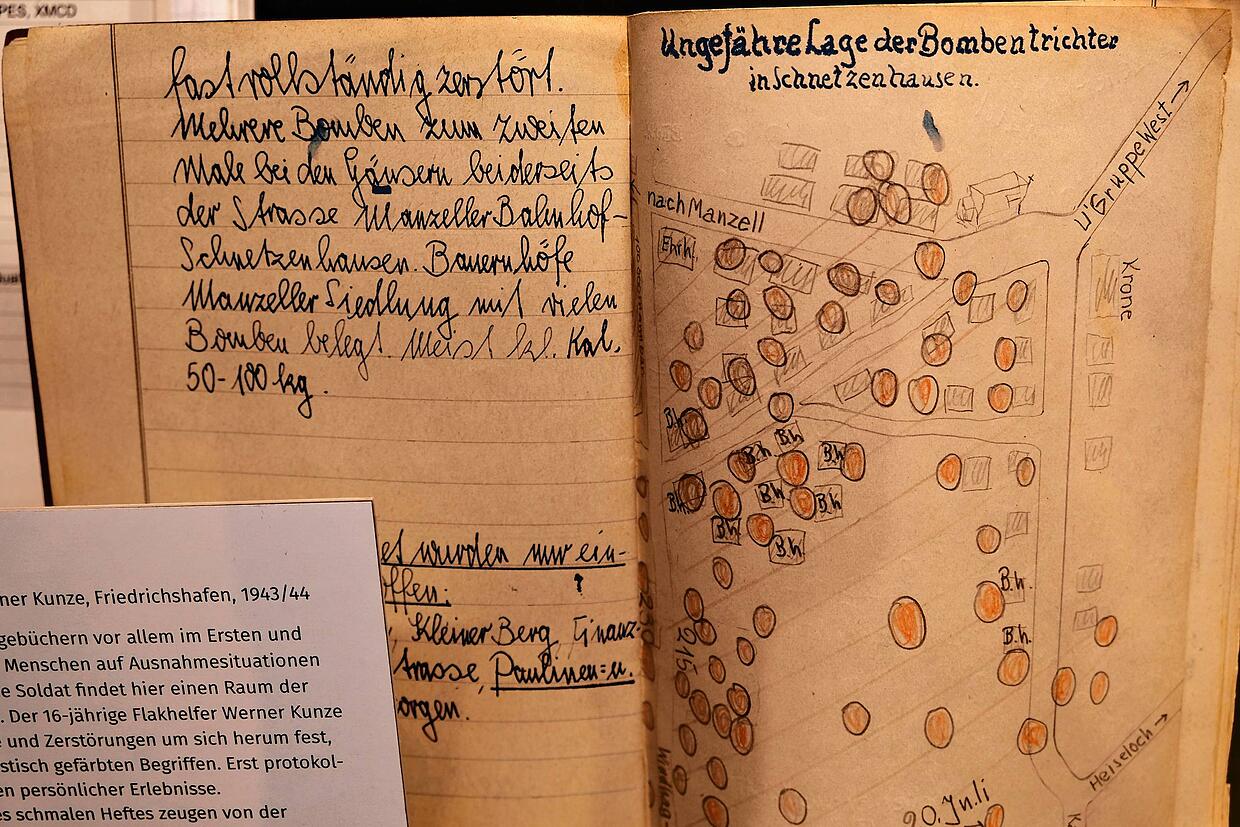 PES, XMCD
fast vollständig zerstört.
Mehrere Bomben zum zweiten
Male bei den Häusern beiderseits
der Strasse Manzeller Bahnhof-
Schnetzenhausen. Bauernhöfe
Manzeller Siedlung mit vielen
Bomben belegt. Meist kl. Kal.
50-100 kg.
et wurden nur ein-
offen:
Kleiner Berg,
trasse, Paulinen= u.
orgen.
ner Kunze, Friedrichshafen, 1943/44
gebüchern vor allem im Ersten und
Menschen auf Ausnahmesituationen
e Soldat findet hier einen Raum der
. Der 16-jährige Flakhelfer Werner Kunze
e und Zerstörungen um sich herum fest,
stisch gefärbten Begriffen. Erst protokol-
en persönlicher Erlebnisse.
es schmalen Heftes zeugen von der
Ungefähre Lage der Bombentrichter
in Schnetzenhausen.
nach Manzell
U'Gruppe West
Krone
B.h
B.h
B.h
B.h
B.h
B.h
B.h
B.h
B.h
B.h.
B.h.
Heiseloch
20. Juli